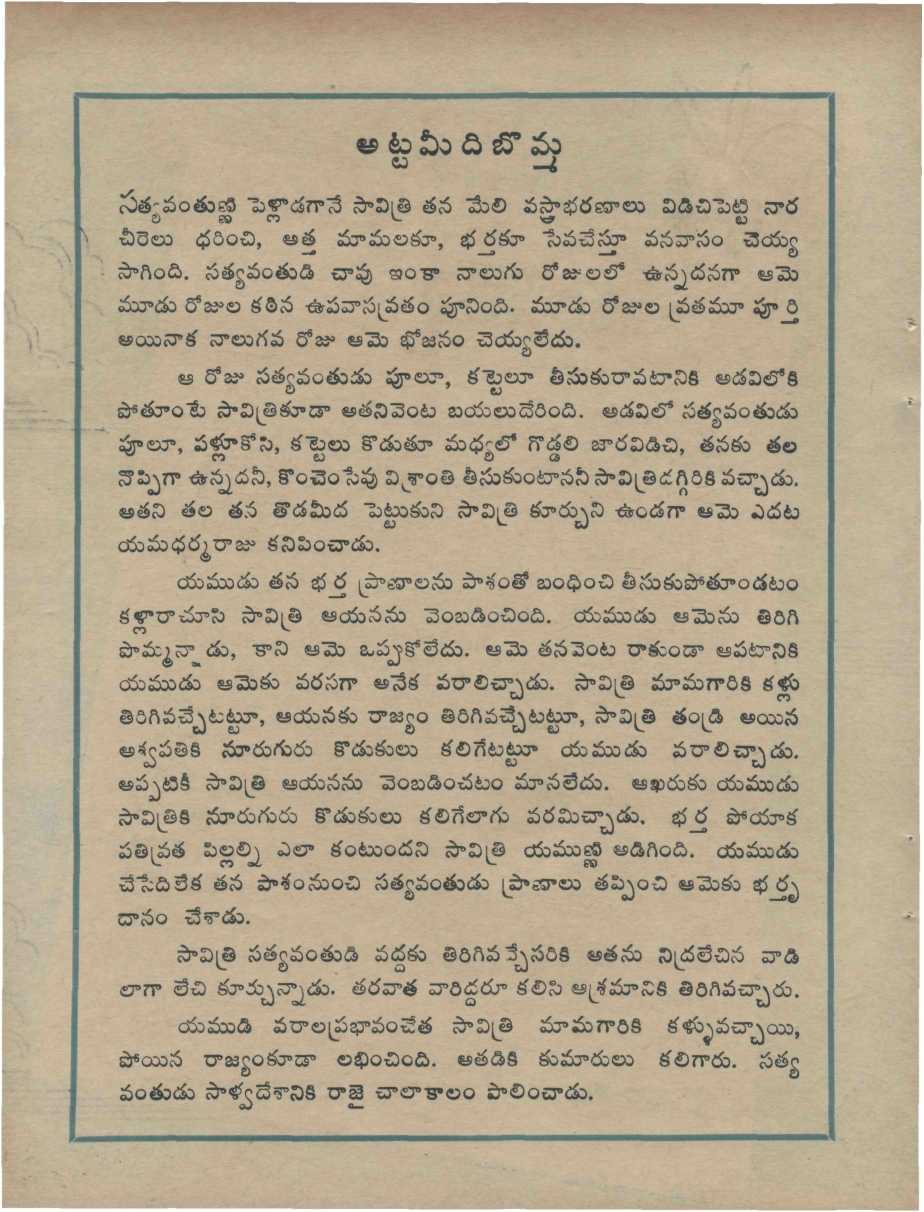 అట్టమీది బొమ్మ
సత్యవంతుణ్ణి పెళ్లాడగానే సావిత్రి తన మేలి వస్త్రాభరణాలు విడిచిపెట్టి నార
చీరెలు ధరించి, అత్త మామలకూ, భర్తకూ సేవచేస్తూ వనవాసం చెయ్య
సాగింది. సత్యవంతుడి చావు ఇంకా నాలుగు రోజులలో ఉన్నదనగా ఆమె
మూడు రోజుల కఠిన ఉపవాసవ్రతం పూనింది. మూడు రోజుల వ్రతమూ పూర్తి
అయినాక నాలుగవ రోజు ఆమె భోజనం చెయ్యలేదు.
ఆ రోజు సత్యవంతుడు పూలూ, కట్టెలూ తీసుకురావటానికి అడవిలోకి
పోతూంటే సావిత్రికూడా అతనివెంట బయలుదేరింది. అడవిలో సత్యవంతుడు
పూలూ, పళ్లూకోసి, కట్టెలు కొడుతూ మధ్యలో గొడ్డలి జారవిడిచి, తనకు తల
నొప్పిగా ఉన్నదనీ, కొంచెంసేపు విశ్రాంతి తీసుకుంటాననీ సావిత్రిదగ్గిరికి వచ్చాడు.
అతని తల తన తొడమీద పెట్టుకుని సావిత్రి కూర్చుని ఉండగా ఆమె ఎదట
యమధర్మరాజు కనిపించాడు.
యముడు తన భర్త ప్రాణాలను పాశంతో బంధించి తీసుకుపోతూండటం
కళ్లారాచూసి సావిత్రి ఆయనను వెంబడించింది. యముడు ఆమెను తిరిగి
పొమ్మన్నాడు, కాని ఆమె ఒప్పుకోలేదు. ఆమె తనవెంట రాకుండా ఆపటానికి
యముడు ఆమెకు వరసగా అనేక వరాలిచ్చాడు. సావిత్రి మామగారికి కళ్లు
తిరిగివచ్చేటట్టూ, ఆయనకు రాజ్యం తిరిగివచ్చేటట్టూ, సావిత్రి తండ్రి అయిన
అశ్వపతికి నూరుగురు కొడుకులు కలిగేటట్టూ యముడు వరాలిచ్చాడు.
అప్పటికీ సావిత్రి ఆయనను వెంబడించటం మానలేదు. ఆఖరుకు యముడు
సావిత్రికి నూరుగురు కొడుకులు కలిగేలాగు వరమిచ్చాడు. భర్త పోయాక
పతివ్రత పిల్లల్ని ఎలా కంటుందని సావిత్రి యముణ్ణి అడిగింది. యముడు
చేసేదిలేక తన పాశంనుంచి సత్యవంతుడు ప్రాణాలు తప్పించి ఆమెకు భర్తృ
దానం చేశాడు.
సావిత్రి సత్యవంతుడి వద్దకు తిరిగివచ్చేసరికి అతను నిద్రలేచిన వాడి
లాగా లేచి కూర్చున్నాడు. తరవాత వారిద్దరూ కలిసి ఆశ్రమానికి తిరిగివచ్చారు.
యముడి వరాలప్రభావంచేత సావిత్రి మామగారికి కళ్ళువచ్చాయి,
పోయిన రాజ్యంకూడా లభించింది. అతడికి కుమారులు కలిగారు. సత్య
వంతుడు సాళ్వదేశానికి రాజై చాలాకాలం పాలించాడు.